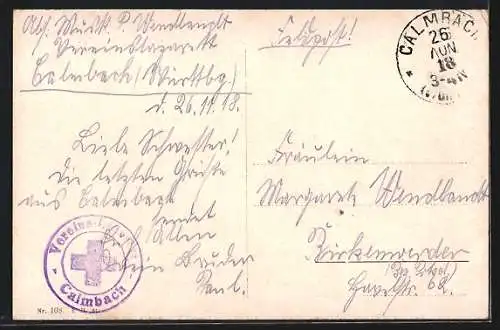 Abs. Musk. P. Wendlandt
Vereinslazarett
Calmbach (Württbg)
d. 26.11.18.
Liebe Schwester!
Die letzten Grüße
aus Calmbach
sendet
Allen
Dein Bruder
Paul.
Vereins-
Calmbach
Nr. 108
Feldpost!
CALMBACH
26
NOV
18
3-4N
Fräulein
Margarete Wendlandt
Birkenwerder
Havelstr. 62.